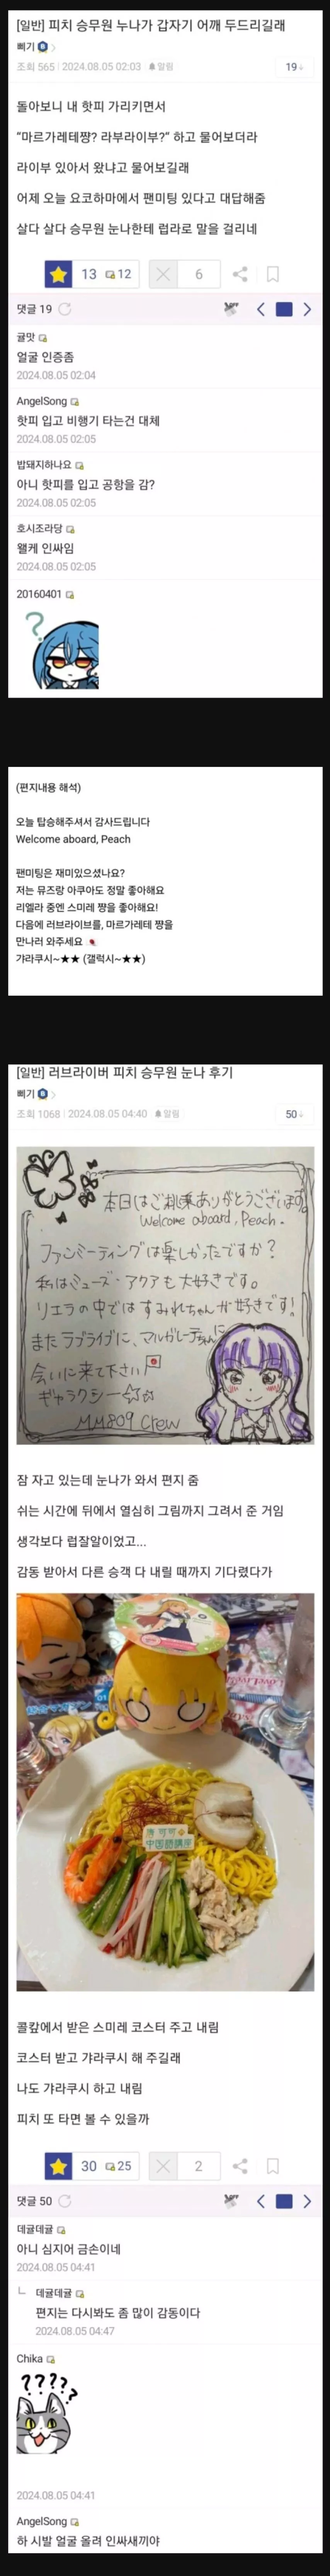 [일반] 피치 승무원 누나가 갑자기 어깨 두드리길래
삐기
조회 565 | 2024.08.05 02:03 알림
19
돌아보니 내 핫피 가리키면서
“마르가레테쨩? 라부라이부?” 하고 물어보더라
라이부 있어서 왔냐고 물어보길래
어제 오늘 요코하마에서 팬미팅 있다고 대답해줌
살다 살다 승무원 눈나한테 럽라로 말을 걸리네
13 12 6
댓글 19
OFF
귤맛
얼굴 인증좀
2024.08.05 02:04
AngelSong
핫피 입고 비행기 타는건 대체
2024.08.05 02:05
밥돼지하나요
아니 핫피를 입고 공항을 감?
2024.08.05 02:05
호시조라당
왤케 인싸임
2024.08.05 02:05
20160401
?
(편지내용 해석)
오늘 탑승해주셔서 감사드립니다
Welcome aboard, Peach
팬미팅은 재미있으셨나요?
저는 뮤즈랑 아쿠아도 정말 좋아해요
리엘라 중엔 스미레 쨩을 좋아해요!
다음에 러브라이브를, 마르가레테 쨩을
만나러 와주세요
갸라쿠시~★★ (갤럭시~★★)
[일반] 러브라이버 피치 승무원 눈나 후기
삐기
조회 1068 | 2024.08.05 04:40 알림
50
本日はご搭乗ありがとうございます。
Welcome aboard, Peach.
ファンミーティングは楽しかったですか?
私はミューズ・アクアも大好きです。
リエラの中ではすみれちゃんが好きです!
またラブライブに、マルガレーテちゃんに
会いに来て下さい
ギャラクシー☆☆
MM809 crew
잠 자고 있는데 눈나가 와서 편지 줌
쉬는 시간에 뒤에서 열심히 그림까지 그려서 준 거임
생각보다 럽잘알이었고...
감동 받아서 다른 승객 다 내릴 때까지 기다렸다가
中国語講座
콜캎에서 받은 스미레 코스터 주고 내림
코스터 받고 갸라쿠시 해 주길래
나도 갸라쿠시 하고 내림
피치 또 타면 볼 수 있을까
30 25 2
댓글 50
OFF
데귤데귤
아니 심지어 금손이네
2024.08.05 04:41
데귤데귤
편지는 다시봐도 좀 많이 감동이다
2024.08.05 04:47
Chika
?????
2024.08.05 04:41
AngelSong
하 시발 얼굴 올려 인싸새끼야